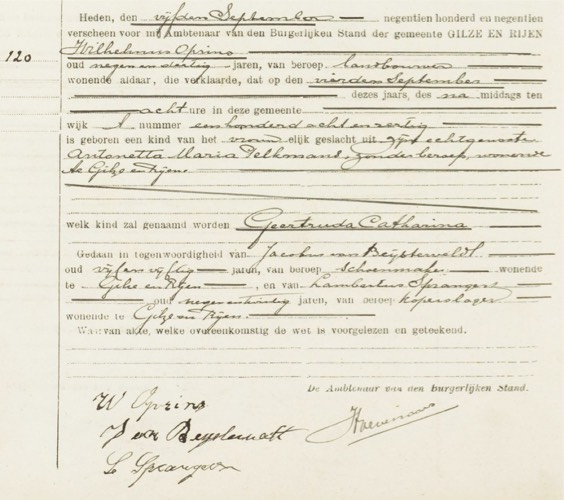 Heden, den vijfden September negentien honderd en negentien
verscheen voor mij Ambtenaar van den Burgerlijken Stand der gemeente GILZE EN RIJEN
120
Wilhelmus Oprins
oud negen en dertig jaren, van beroep landbouwer
wonende aldaar, die verklaarde, dat op den vierden September
dezes jaars, des na middags ten
acht ure in deze gemeente
wijk A nummer eenhonderd acht en zestig
is geboren een kind van het vrouwelijk geslacht uit zijn echtgenoote
Antonetta Maria zonder beroep, wonende
te Gilze en Rijen
welk kind zal genaamd worden Geertruda Catharina
Gedaan in tegenwoordigheid van Jacobus van Beijsterveldt
oud vijf en vijftig jaren, van beroep schoenmaker wonende
te Gilze en Rijen, en van Lambertus Sprangers
oud negen en jaren, van beroep koperslager
wonende te Gilze en Rijen.
Waarvan akte, welke overeenkomstig de wet is voorgelezen en geteekend.
De Ambtenaar van den Burgerlijken Stand.
W Oprins
J van Beijsterveldt
L Sprangers